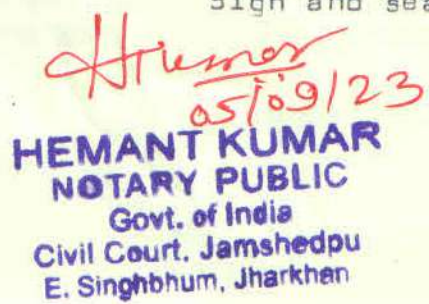 Sign and sea
Hkumar
05/09/23
HEMANT KUMAR
NOTARY PUBLIC
Govt. of India
Civil Court. Jamshedpu
E. Singhbhum, Jharkhan